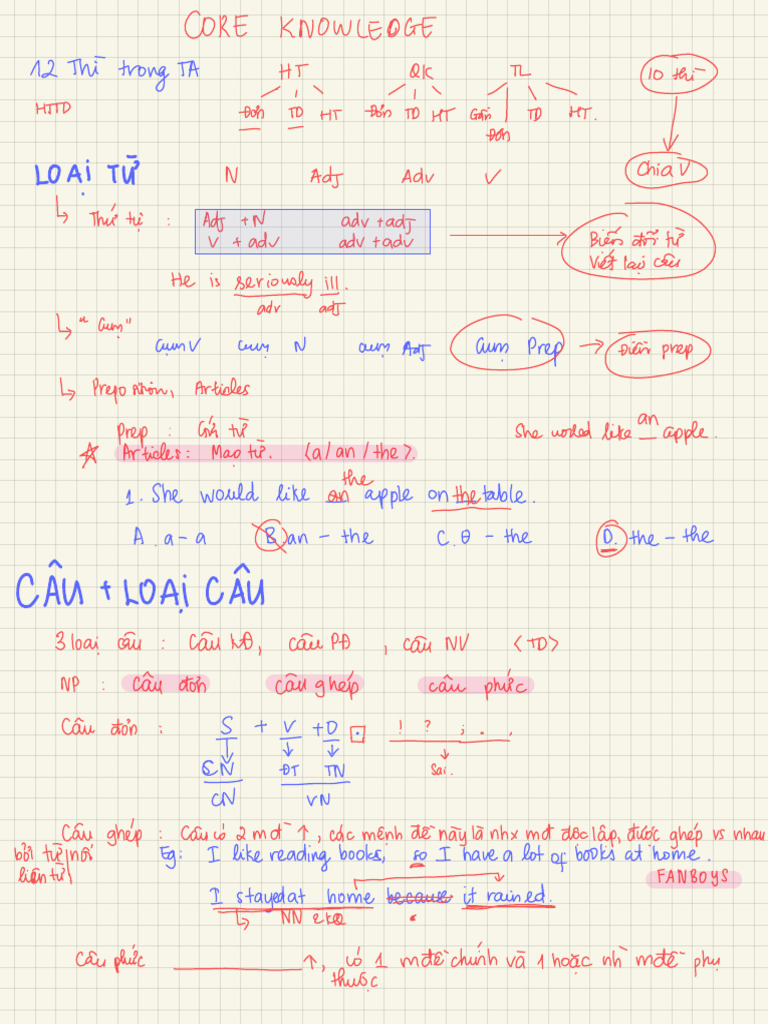 CORE KNOWLEDGE
12 Thì trong TA HT QK TL 10 thì
HTTD Đơn TD HT Đơn TD HT Gần TD HT.
Đơn
LOẠI TỪ N Adj Adv V Chia V
Thứ tự : Adj + N adv + adj
V + adv adv + adv
Biến đổi từ
Viết lại câu
He is seriously ill.
adv adj
"Cụm"
cụm V cụm N cụm Adj Cụm Prep → Điền prep
Preposition, Articles
Prep : Giới từ
She would like an apple.
Articles: Mạo từ. <a/an/the>.
the
1. She would like an apple on the table.
A. a - a B. an - the C. θ - the D. the - the
CÂU + LOẠI CÂU
3 loại câu : Câu KĐ, câu PĐ , câu NV <TD>
NP : Câu đơn câu ghép câu phức
Câu đơn : S + V + O . ! ? ; . ,
CN ĐT TN Sai.
CN VN
Câu ghép : Câu có 2 mđ ↑, các mệnh đề này là nhx mđ độc lập, được ghép vs nhau
bởi từ nối
liên từ
Eg: I like reading books, so I have a lot of books at home.
FANBOYS
I stayed at home because it rained.
NN kq
Câu phức ↑, có 1 mđề chính và 1 hoặc nh` mđề phụ
thuộc